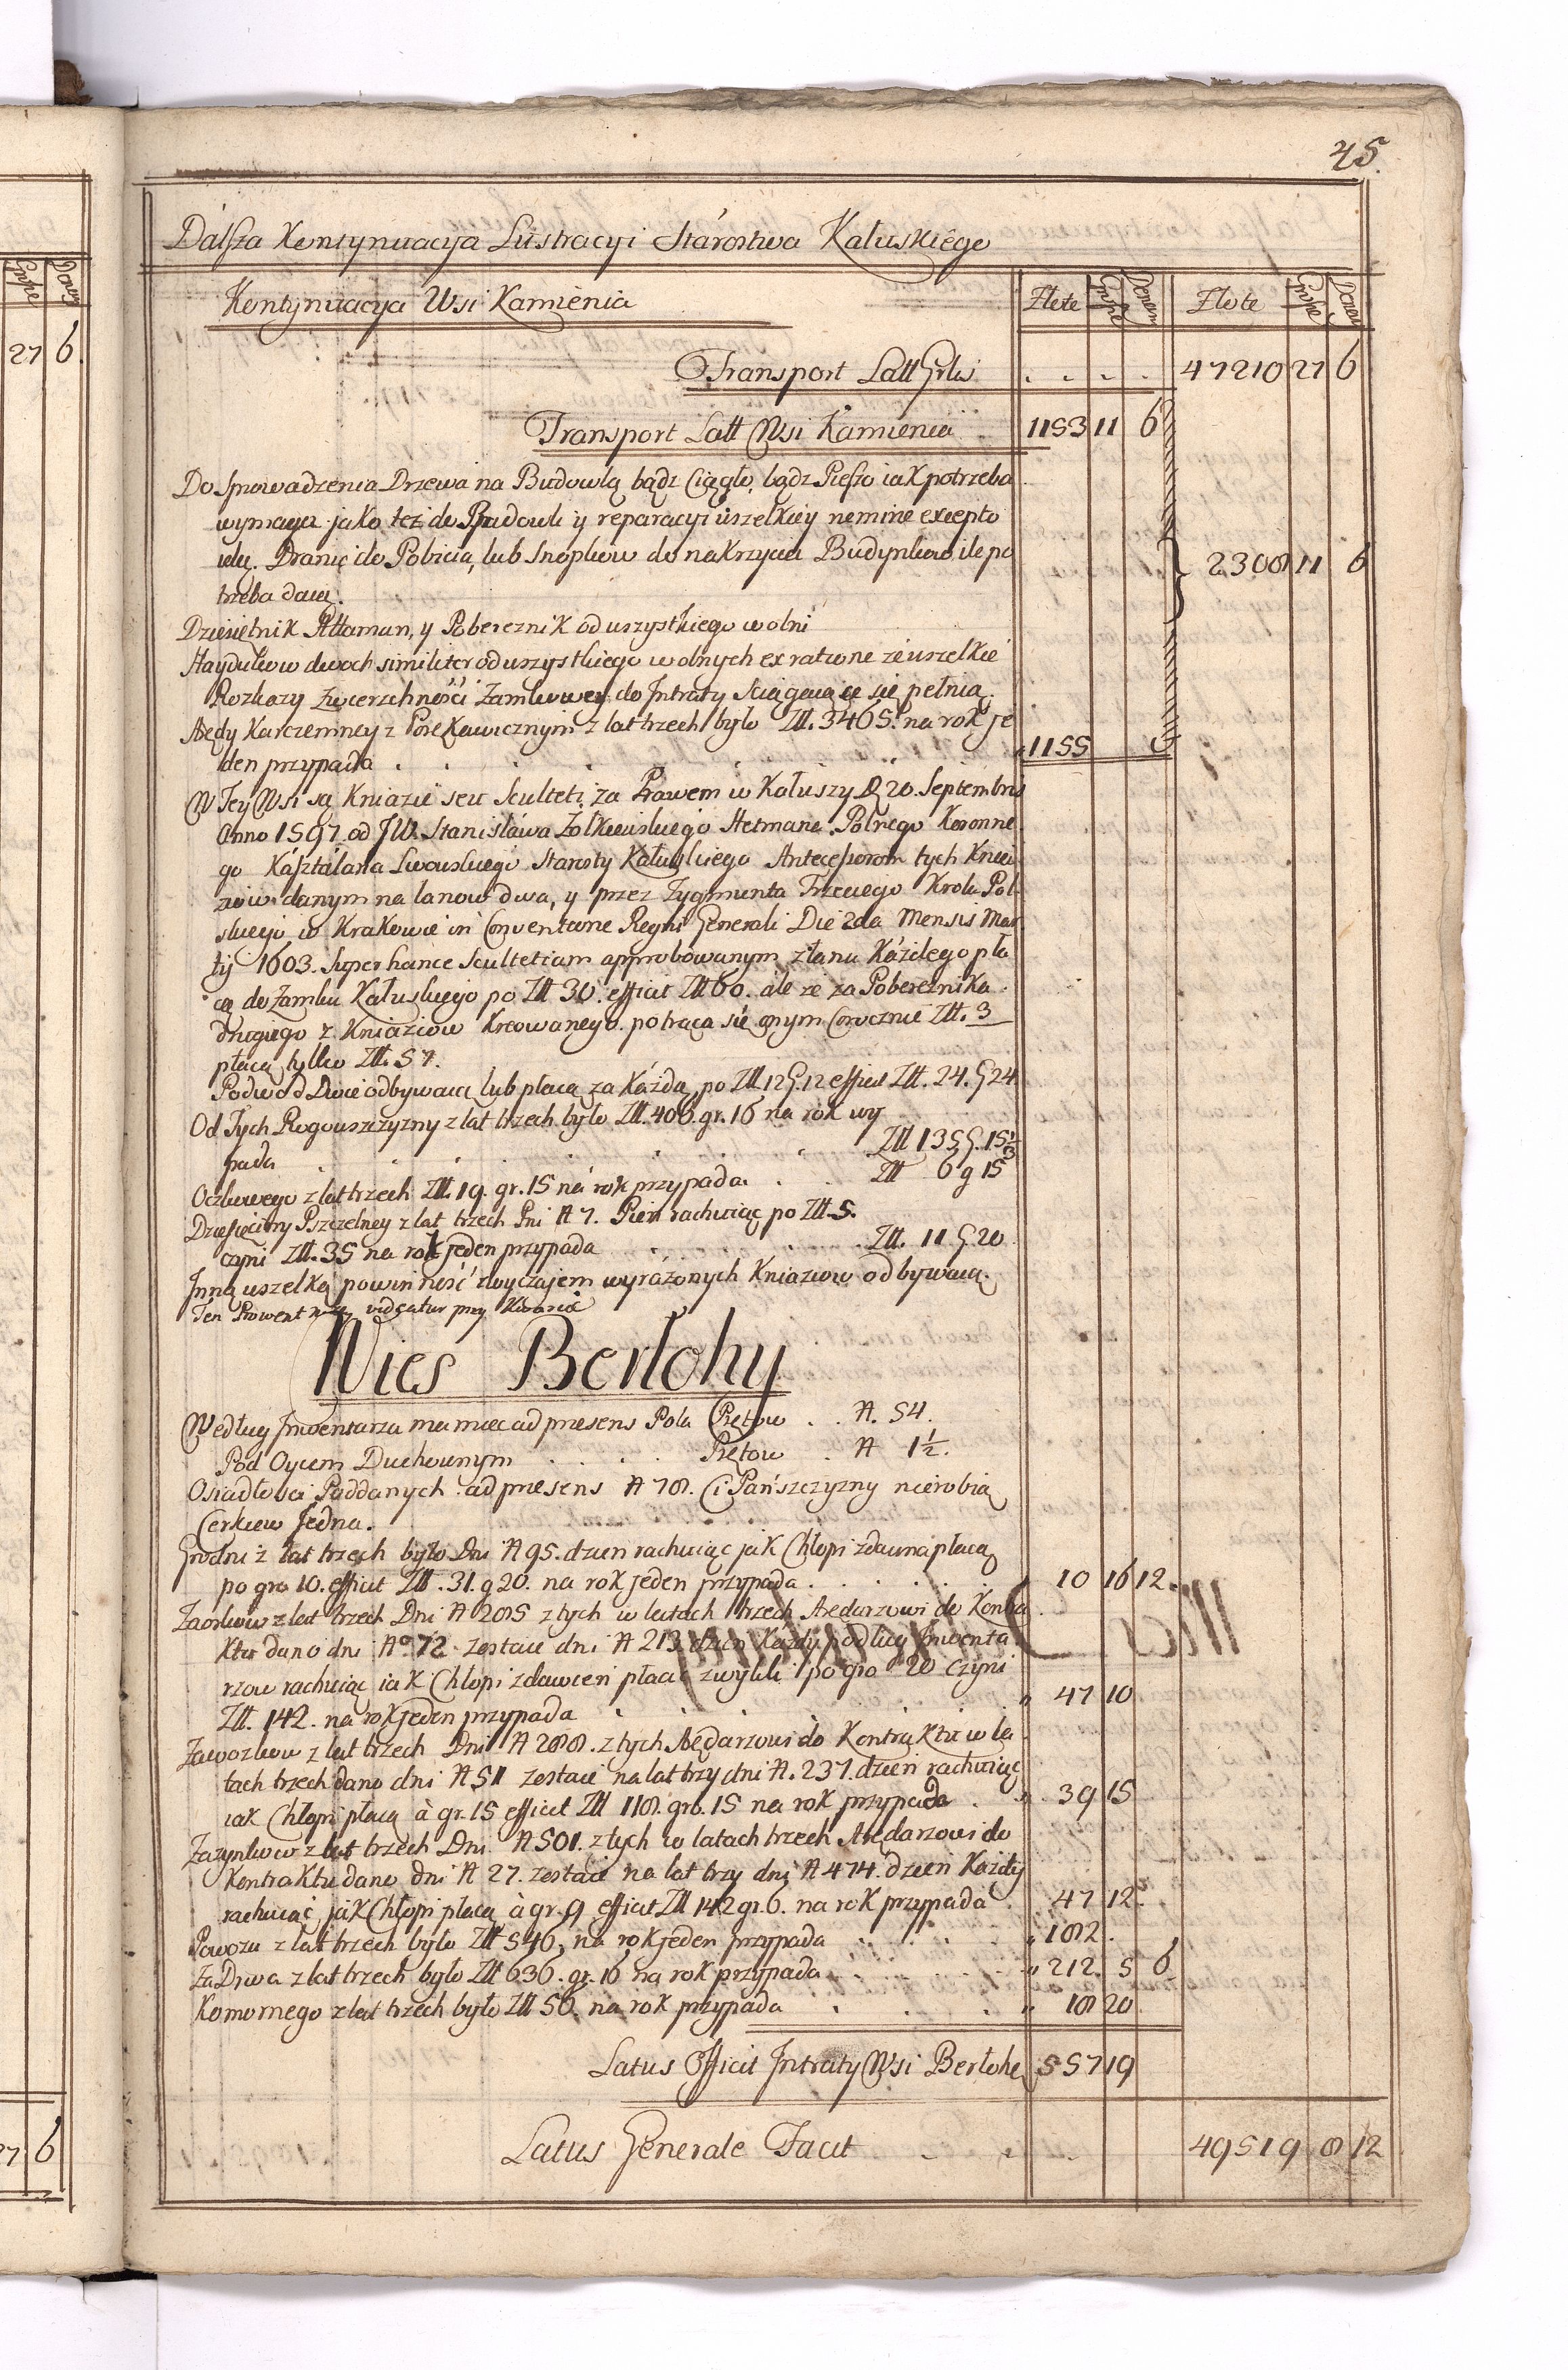 45.
Dalsza Kontynuacya Lustracyi Starostwa Kałuskiego
Kontynuacya Wsi Kamienia Złote Grosze Denar Złote Grosze Denar
Transport Latt Grlis . . . . 47210 27 6
Transport Latt Wsi Kamienia 1153 11 6
Do Sprowadzenia Drzewa na Budowlą bądz Ciągło, bądz Pieszo iak potrzeba
wymaga jako też do Budowli y reparacyi wszelkiey nemine excepto
idą. Dranic do Pobicia, lub Snopkow do nakrzycia Budynkow ile po 2308 11 6
trzeba daią.
Dziesiętnik Attaman, y Pobereznik od wszystkiego wolni
Haydukow dwoch similiter od wszystkiego wolnych ex ratione że wszelkie
Rozkazy Zwierzchności Zamkowey do Intraty sciągaiące się pełnią.
Arędy Karczemney z Porękawicznym z lat trzech było Złł. 3465. na rok je
den przypada . . . . 1155
W Tey Wsi są Kniazie seu Sculteti, za Prawem w Kałuszy D 20. Septembris
Anno 1597. od JW. Stanisława Żołkiewskiego Hetmana Polnego Koronne
go Kasztalana Lwowskiego Starosty Kałuskiego Antecessorom tych Knia
ziow danym na lanow dwa, y przez Zygmunta Trzeciego Krola Pol
skiego w Krakowie in Conventione Regni Generali Die 2da Mensis Mar
tij 1603. Super hance Scultetiam approbowanym z łanu Każdego pła
cą do Zamku Kałuskiego po Złł 30. efficit Złł 60. ale że za Pobereznika
drugiego z Kniaziow Kreowanego potrąca się onym Corocznie Złł. 3
płacą tylko Złł. 57.
Podwod Dwie odbywaią lub płacą za Każdą po Złł 12 G. 12 efficit Złł. 24. G 24
Od Tych Rogowszczyzny z lat trzech było Złł. 406. gr. 16 na rok wy
pada . . . . Złł 135 G. 15 1/3
Oczkowego z lat trzech Złł. 19. gr. 15 na rok przypada . . Złł 6 g 15
Dziesięciny Pszczelney z lat trzech Pni N 7. Pień rachuiąc po Złł. 5.
czyni Złł. 35 na rok jeden przypada . . . Złł. 11 G 20
Inną wszelką powinność zwyczajem wyrażonych Kniaziow odbywaią.
Ten Prowent videatur przy
Wieś Berłohy
Według Inwentarza ma miec ad presens Pola Prętow . . N. 54.
Pod Oycem Duchownym . . . . Prętow . N 1 1/2.
Osiadłości Paddanych ad presens N 78. Ci Pańszczyzny nierobią
Cerkiew Jedna.
Grodni z lat trzech było Dni N 95. dzien rachuiąc jak Chłopi zdawna płacą
po gro 10. efficit Złł. 31. g 20. na rok jeden przypada . . . 10 16 12.
Zaorkow z lat trzech Dni N 285 z tych w latach trzech Aredarzowi do Kontra
ktu dano dni No 72. zostaie dni N 213. dzien Każdy podług Inwenta
rzow rachuiąc iak Chłopi zdawień płacić zwykli po gro 20 czyni
Złł. 142. na rok jeden przypada . . . 47 10
Zawozkow z lat trzech Dni N 288. z tych Arędarzowi do Kontraktu w la
tach trzech dano dni N 51 zostaie na lat trzy dni N. 237. dzien rachuiąc
iak Chłopi płacą à gr. 15 efficit Złł 118. gro. 15 na rok przypada . 39 15
Zazynkow z lat trzech Dni N 501. z tych w latach trzech Arędarzowi do
Kontraktu dano dni N 27. zostaie na lat trzy dni N 474. dzien Każdy
rachuiąc jak Chłopi płacą à gr. 9 efficit Złł 142 gr. 6. na rok przypada 47 12
Powozu z lat trzech było Złł 546, na rok jeden przypada . . . 182.
Za Drwa z lat trzech było Złł 636. gr. 16 na rok przypada . . . 212. 5 6
Komornego z lat trzech było Złł 56. na rok przypada . . . 18 20
Latus Efficit Intraty Wsi Berłohę 557 19
Latus Generale Facit . . . 49519 8 12
27 6.
27 6